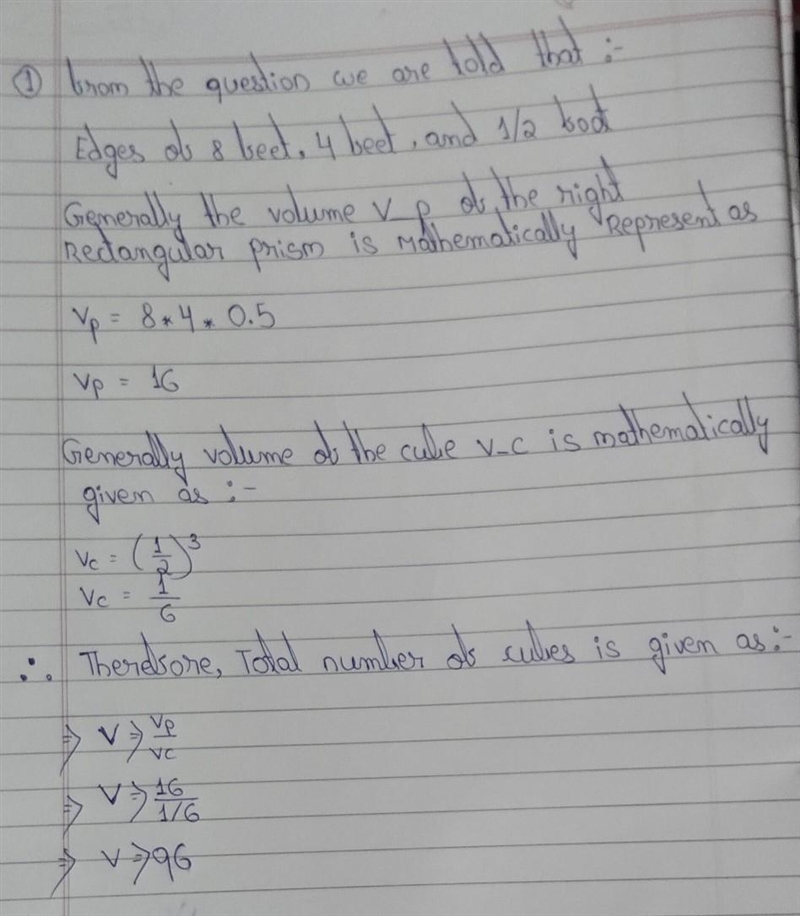 ① from the question we are told that :-
Edges of 8 feet, 4 feet, and 1/2 foot
Generally the volume V_p of the right
Rectangular prism is Mathematically Represent as
Vp = 8*4*0.5
Vp = 16
Generally volume of the cube V-C is mathematically
given as :-
Vc = (1/2)³
Vc = 1/6
∴ Therefore, Total number of cubes is given as:-
⇒ V ⇒ Vp/Vc
⇒ V ⇒ 16/1/6
⇒ V ⇒ 96